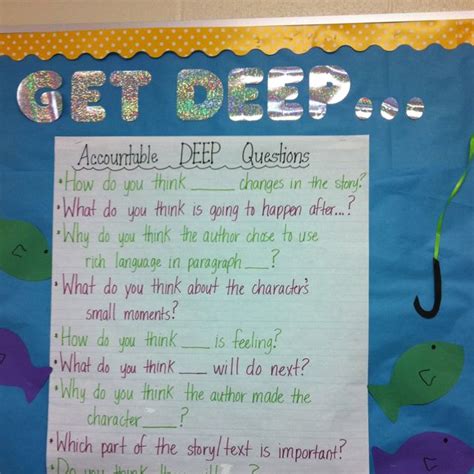 GET DEEP...
Accountable DEEP Questions
• How do you think ____ changes in the story?
• What do you think is going to happen after...?
• Why do you think the author chose to use
rich language in paragraph ___?
• What do you think about the character's
small moments?
• How do you think ___ is feeling?
• What do you think ___ will do next?
• Why do you think the author made the
character ___?
• Which part of the story/text is important?
• Do you think